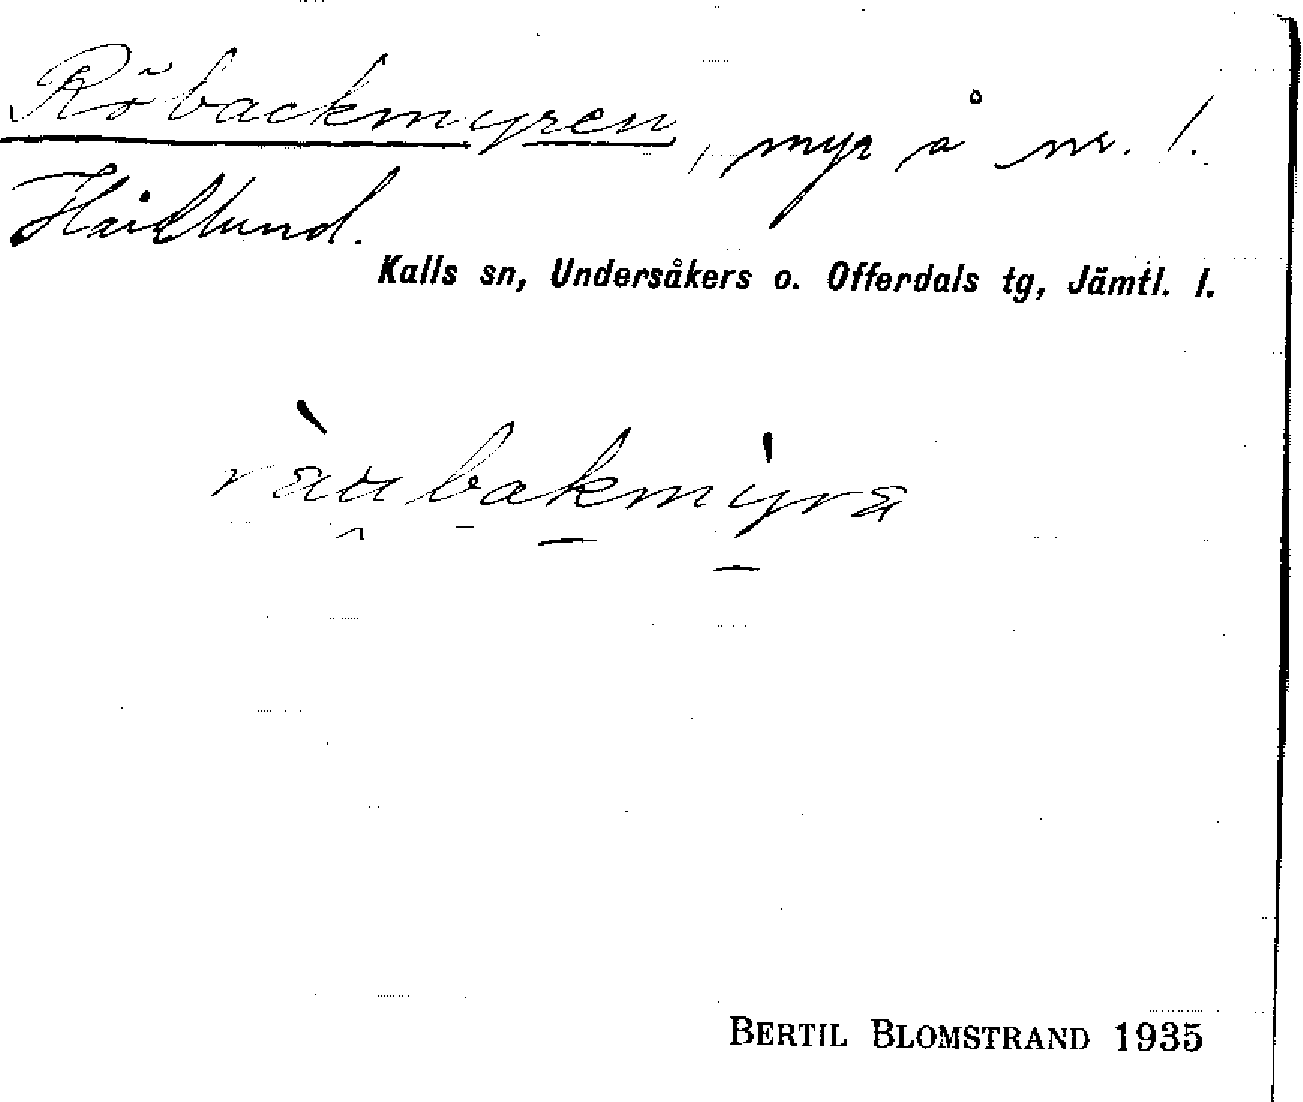 Röbackmyren, myr å nr. 1.
Kalls sn, Undersåkers o. Offerdals tg, Jämtl. l.
BERTIL BLOMSTRAND 1935